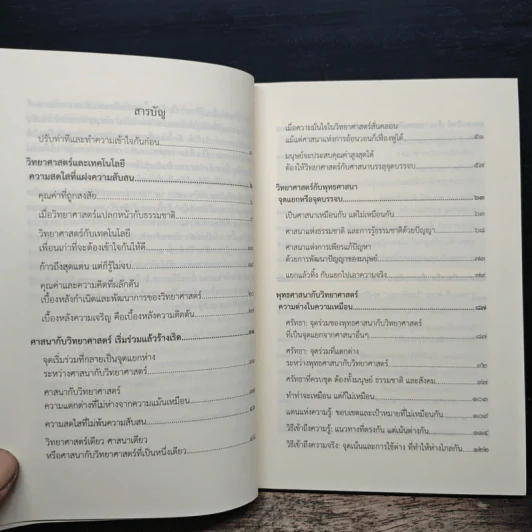 สารบัญ
ปรับท่าทีและทำความเข้าใจกันก่อน
วิทยาศาสตร์และเทคโนโลยี
ความสดใสที่แฝงความสับสน
คุณค่าที่ถูกสงสัย
เมื่อวิทยาศาสตร์แปลกหน้ากับธรรมชาติ
วิทยาศาสตร์กับเทคโนโลยี
เพื่อนเก่าที่จะต้องเข้าใจกันให้ดี
ก้าวถึงสุดแดน แต่ก็รู้ไม่จบ
คุณค่าและความคิดที่ผลักดัน
เบื้องหลังกำเนิดและพัฒนาการของวิทยาศาสตร์
เบื้องหลังความเจริญ คือเบื้องหลังความติดตัน
ศาสนากับวิทยาศาสตร์ เริ่มร่วมแล้วร้างเริด
จุดเริ่มร่วมที่กลายเป็นจุดแยกห่าง
ระหว่างศาสนากับวิทยาศาสตร์
ศาสนากับวิทยาศาสตร์
ความแตกต่างที่ไม่ห่างจากความแม้นเหมือน
ความสดใสที่ไม่พ้นความสับสน
วิทยาศาสตร์เดียว ศาสนาเดียว
หรือศาสนากับวิทยาศาสตร์ที่เป็นหนึ่งเดียว
เมื่อความมั่นใจในวิทยาศาสตร์สั่นคลอน
แม้แต่ศาสนาแห่งการอ้อนวอนก็เฟื่องฟูได้ ๕๑
มนุษย์จะประสบคุณค่าสูงสุดได้
ต้องให้วิทยาศาสตร์กับศาสนาบรรลุจุดบรรจบ ๕๗
วิทยาศาสตร์กับพุทธศาสนา
จุดแยกหรือจุดบรรจบ ๖๓
เป็นศาสนาเหมือนกัน แต่ไม่เหมือนกัน ๖๓
ศาสนาแห่งธรรมชาติ และการรู้ธรรมชาติด้วยปัญญา ๖๘
ศาสนาแห่งการเพียรแก้ปัญหา
ด้วยการพัฒนาปัญญาของมนุษย์
แยกแล้วทิ้ง กับแยกไปเอาความจริง
พุทธศาสนากับวิทยาศาสตร์
ความต่างในความเหมือน ๘๗
ศรัทธา: จุดร่วมของพุทธศาสนากับวิทยาศาสตร์
ที่เป็นจุดแยกจากศาสนาอื่นๆ ๘๗
ศรัทธา: จุดร่วมที่แตกต่าง
ระหว่างพุทธศาสนากับวิทยาศาสตร์ ๙๒
ศรัทธาที่ครบชุด ต้องทั้งมนุษย์ ธรรมชาติ และสังคม ๙๗
ท่าทำจะเหมือน แต่ก็ไม่เหมือน ๑๐๓
แดนแห่งความรู้: ขอบเขตและเป้าหมายที่ไม่เหมือนกัน ๑๐๙
วิธีเข้าถึงความรู้: แนวทางที่ตรงกัน แต่เน้นต่างกัน ๑๑๕
วิธีเข้าถึงความจริง: จุดเน้นและการใช้ต่าง ที่ทำให้ห่างไกลกัน ๑๒๒